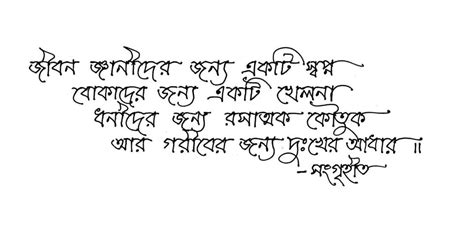 জীবন জ্ঞানীদের জন্য একটি স্বপ্ন
বোকাদের জন্য একটি খেলনা
ধনীদের জন্য রসাত্মক কৌতুক
আর গরীবের জন্য দুঃখের আধার ॥
- সংগৃহীত